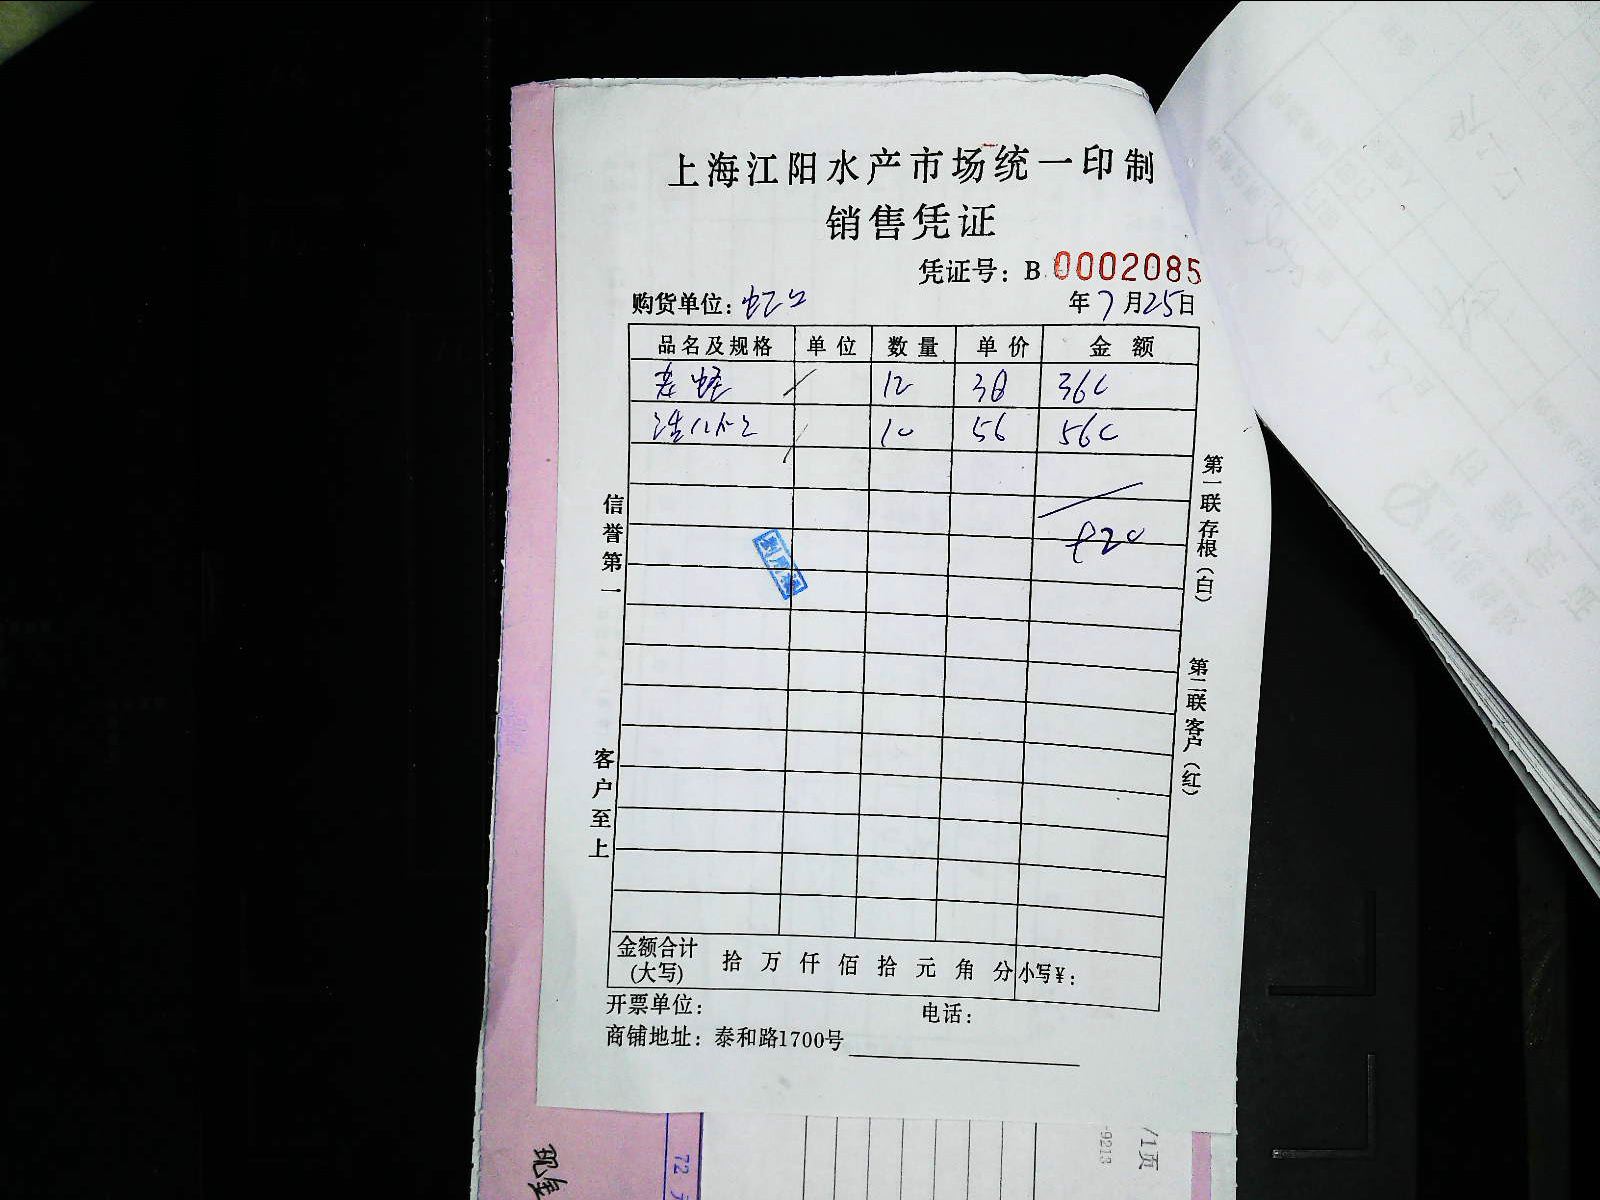 上海江阳水产市场统一印制
销售凭证
凭证号：B 0002085
购货单位：虹口 年 7 月 25 日
品名及规格 单位 数量 单价 金额
老蛏 / 12 30 360
10 56 560
920
信誉第一
客户至上
第一联存根（白）
第二联客户（红）
金额合计(大写) 拾 万 仟 佰 拾 元 角 分 小写￥：
开票单位： 电话：
商铺地址：泰和路1700号
现金
72
-9213
/1页